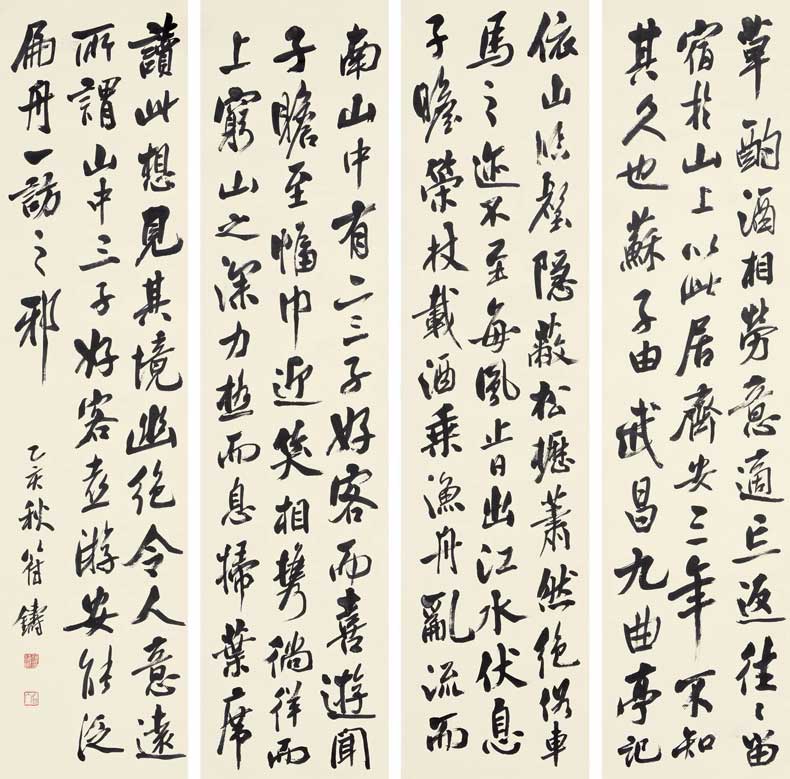 草酌酒相勞意適忘返往〻留
宿於山上以此居齊安三年不知
其久也蘇子由武昌九曲亭記
依山臨壑隱蔽松櫪蕭然絕俗車
馬之迹不至每風止日出江水伏息
子瞻策杖載酒乘漁舟亂流而
南山中有二三子好客而喜遊聞
子瞻至幅巾迎笑相攜徜徉而
上窮山之深力極而息掃葉席
讀此想見其境幽絕令人意遠
所謂山中三子好客喜游安能泛
扁舟一訪之邪
乙亥秋符鑄